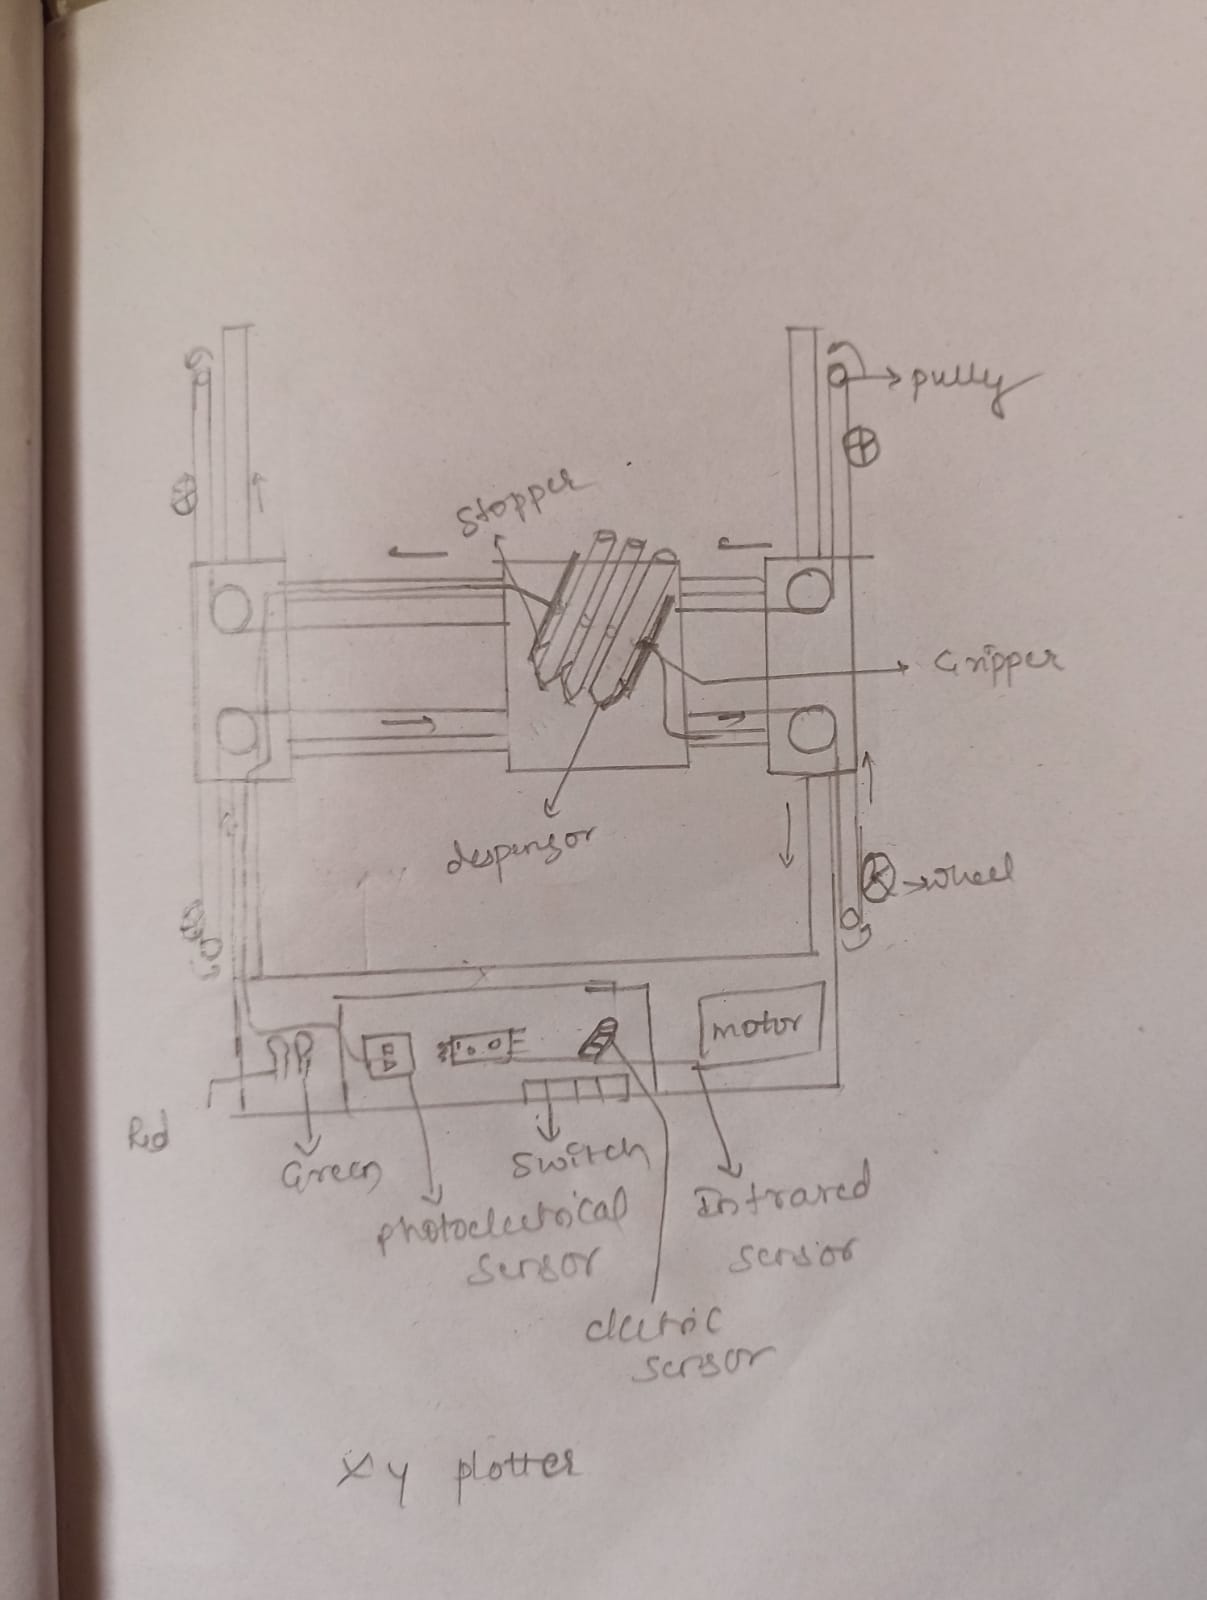 pully
Stopper
Gripper
despensor
wheel
motor
Red
Green
Switch
photoelectrical
sensor
Infrared
sensor
electric
sensor
xy plotter